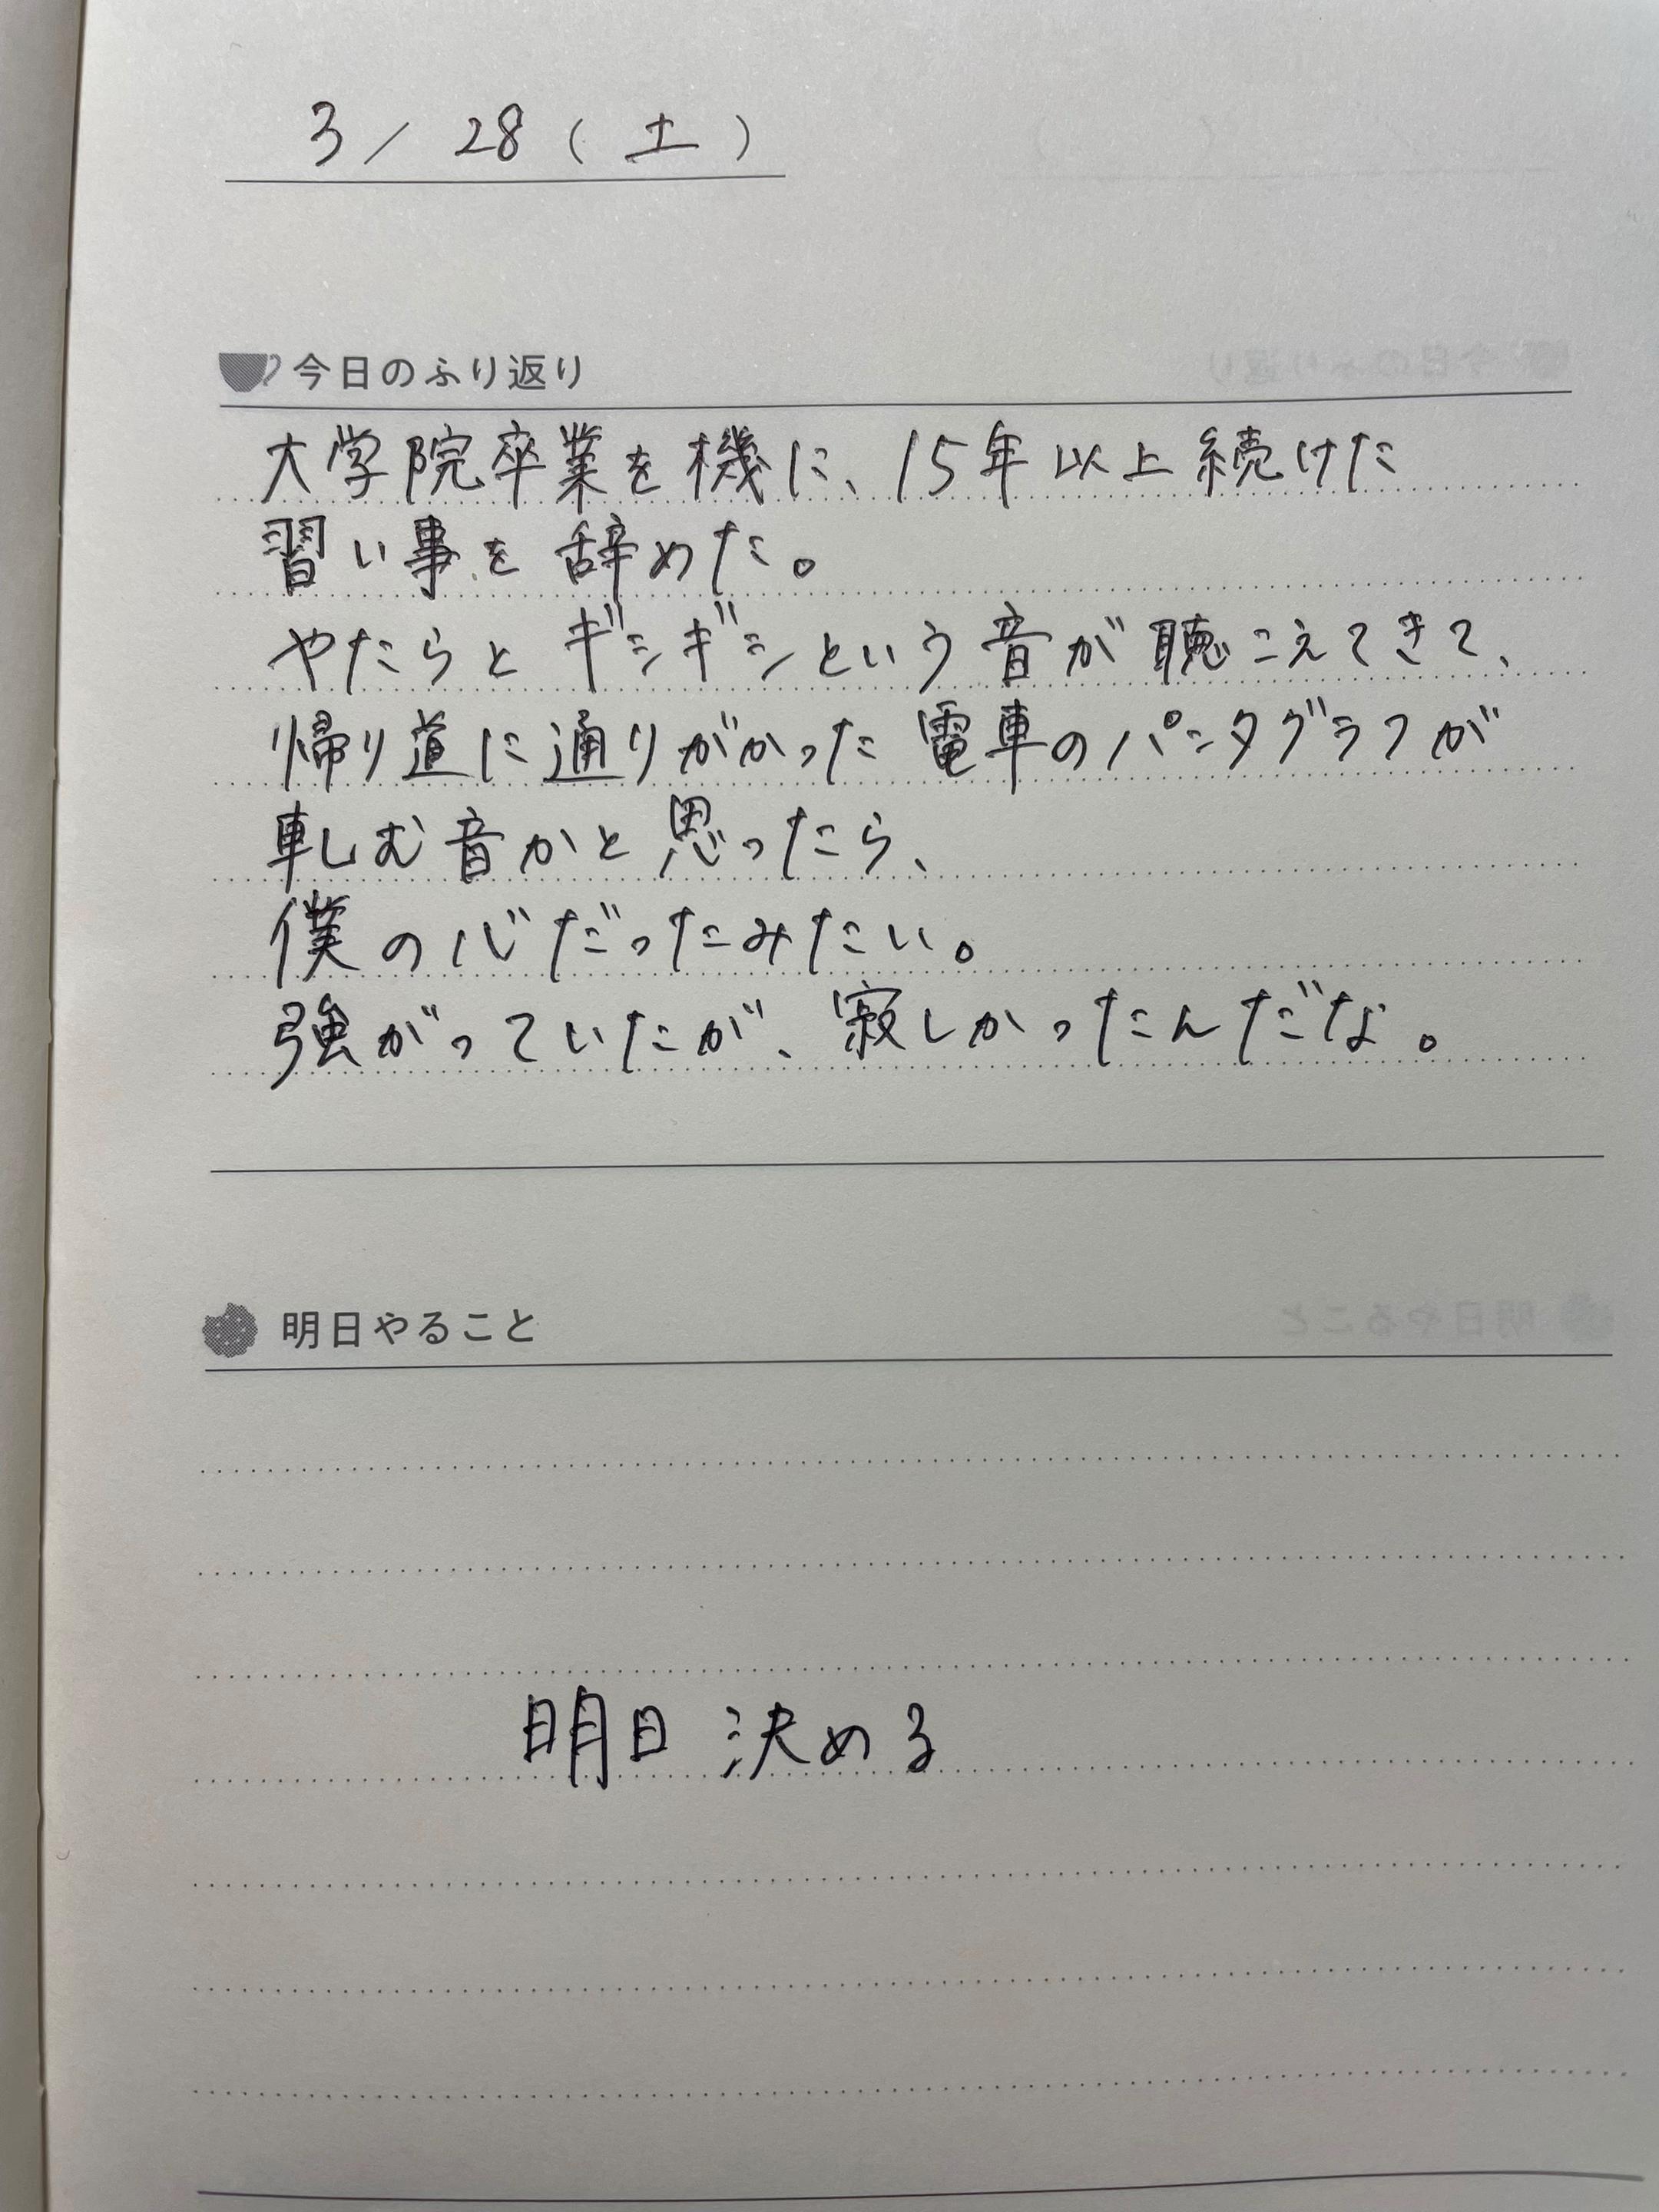 3/28(土)
今日のふり返り
大学院卒業を機に、15年以上続けた
習い事を辞めた。
やたらとギシギシという音が聴こえてきて、
帰り道に通りがかった電車のパンタグラフが
軋む音かと思ったら、
僕の心だったみたい。
強がっていたが、寂しかったんだな。
明日やること
明日決める